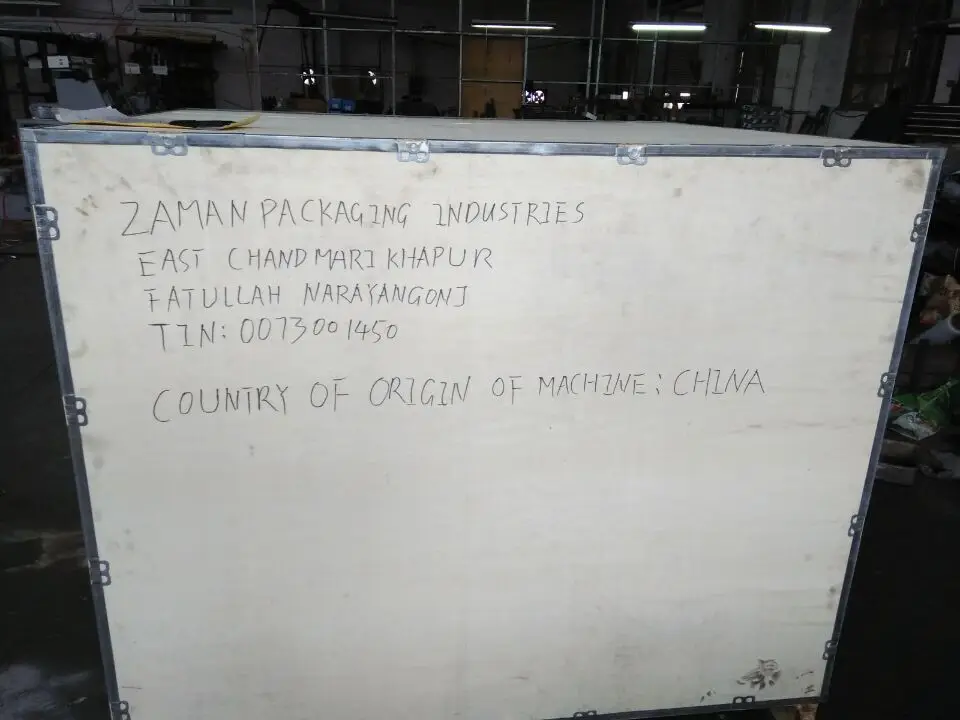 ZAMAN PACKAGING INDUSTRIES
EAST CHANDMARI KHAPUR
FATULLAH NARAYANGONJ
TIN: 0073001450
COUNTRY OF ORIGIN OF MACHINE: CHINA